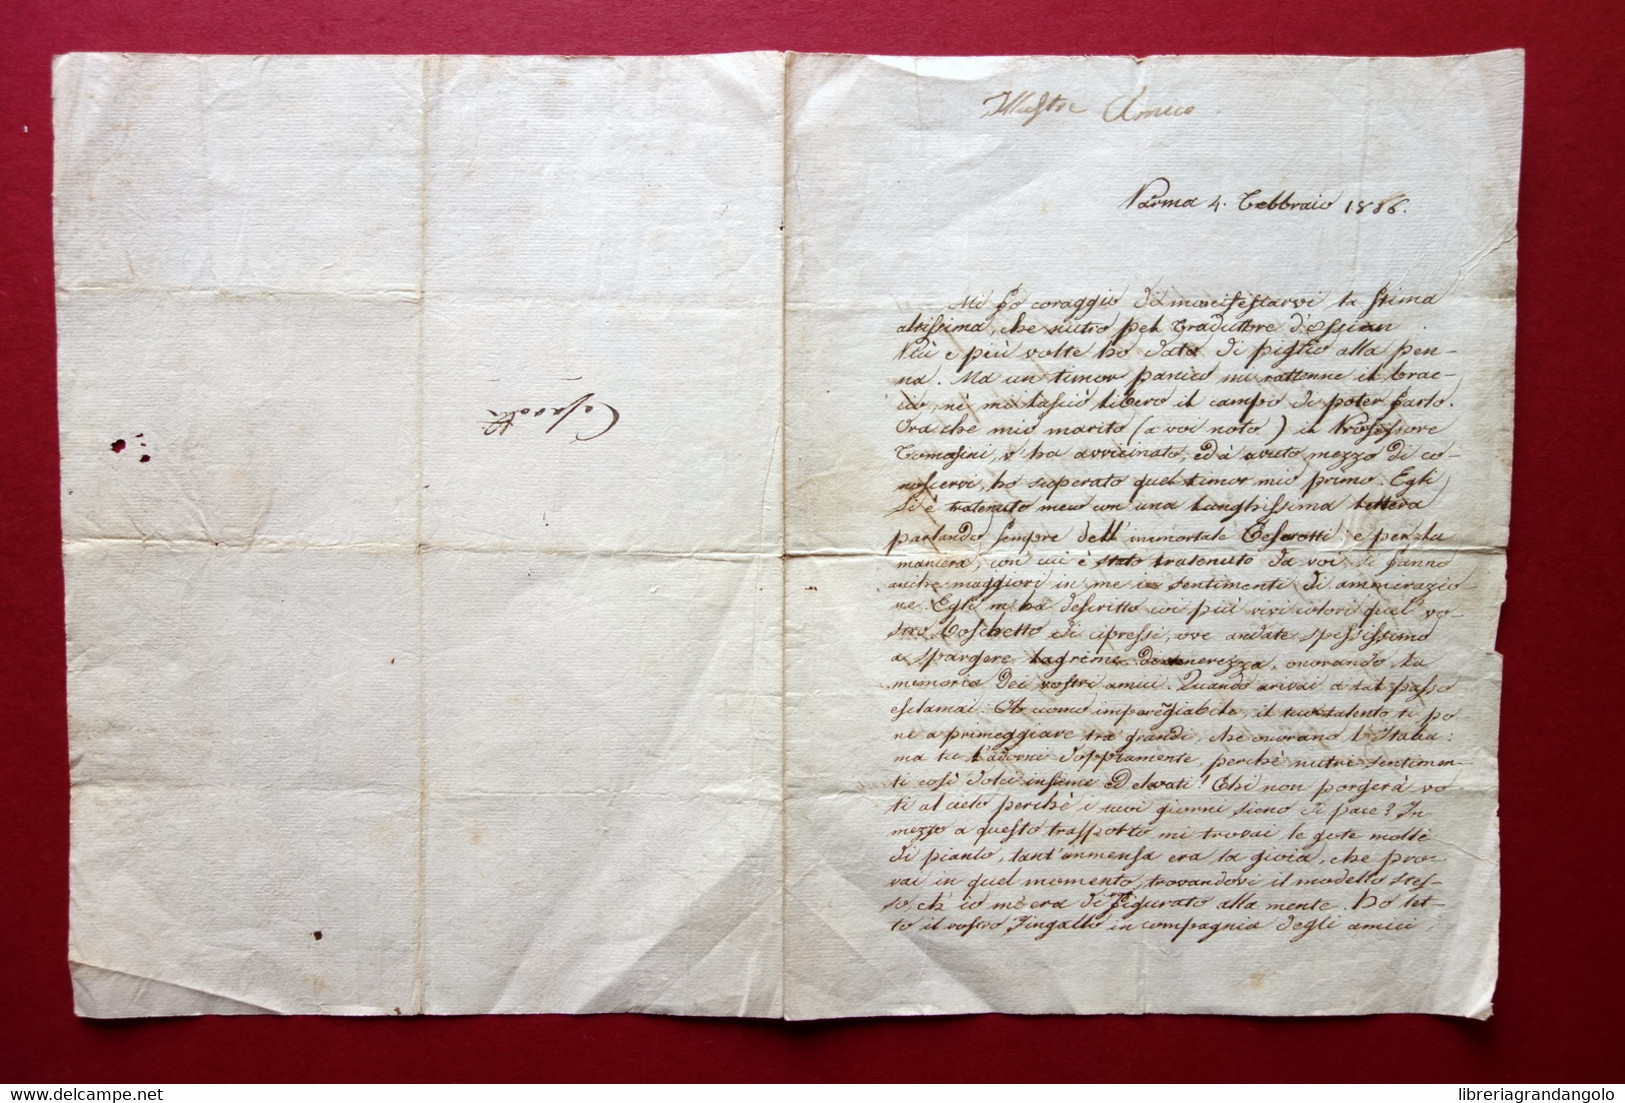 Illustre Amico
Parma 4. Febbraio 1806.
Mi fo coraggio di manifestarvi la stima
altissima, che nutro pel traduttore d'Ossian
Più e più volte ho dato di piglio alla pen-
na. Ma un timor panico mi rattenne il brac-
cio, nè mi lasciò libero il campo di poter farlo.
Ora che mio marito (a voi noto) il Professore
Tomasini, v'ha avvicinato, ed à avuto mezzo di co-
noscervi, ho superato quel timor mio primo. Egli
si è tratenuto meco con una lunghissima lettera
parlando sempre dell'immortale Cesarotti; e per la
maniera, con cui è stato tratenuto da voi, si fanno
anche maggiori in me i sentimenti di ammirazio-
ne. Egli m'ha descritto coi più vivi colori quel vo-
stro Boschetto di cipressi, ove andate spessissimo
a spargere lagrime di tenerezza, onorando la
memoria dei vostri amici. Quando arivai a tal passo
esclamai: Oh uomo impareggiabile, il tuo talento ti po
ne a primeggiare tra' grandi, che onorano l'Italia:
ma tu l'adorni doppiamente, perchè nutri sentimen-
ti così dolci insieme ed elevati! Chi non porgerà vo-
ti al cielo perchè i tuoi giorni sieno di pace? In
mezzo a questo trasporto mi trovai le gote molli
di pianto, tant'immensa era la gioia, che pro-
vai in quel momento, trovandovi il modello stes-
so, ch'io m'era di voi figurato alla mente. Ho let-
to il vostro Fingallo in compagnia degli amici,
Cesarotti
libreriagrandangolo
delcampe.net